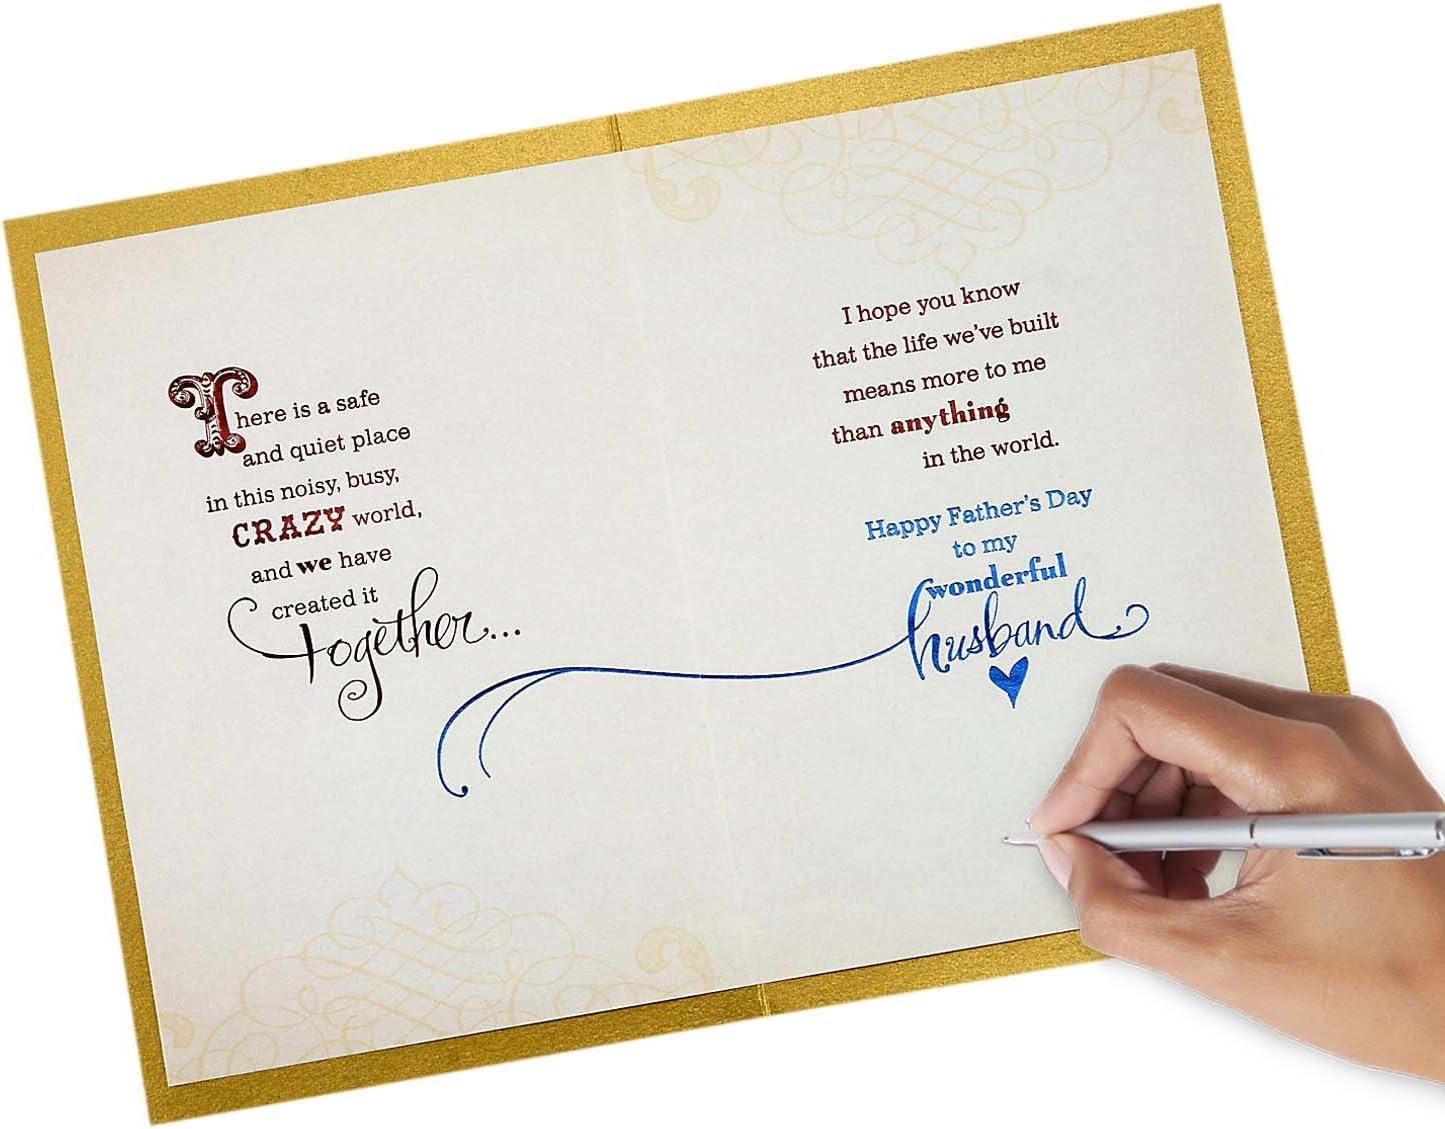 There is a safe
and quiet place
in this noisy, busy,
CRAZY world,
and we have
created it
together...
I hope you know
that the life we've built
means more to me
than anything
in the world.
Happy Father's Day
to my
wonderful
husband